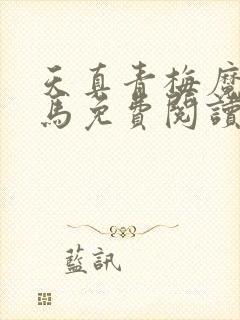 天真青梅魔
馬免費閱讀
藍訊